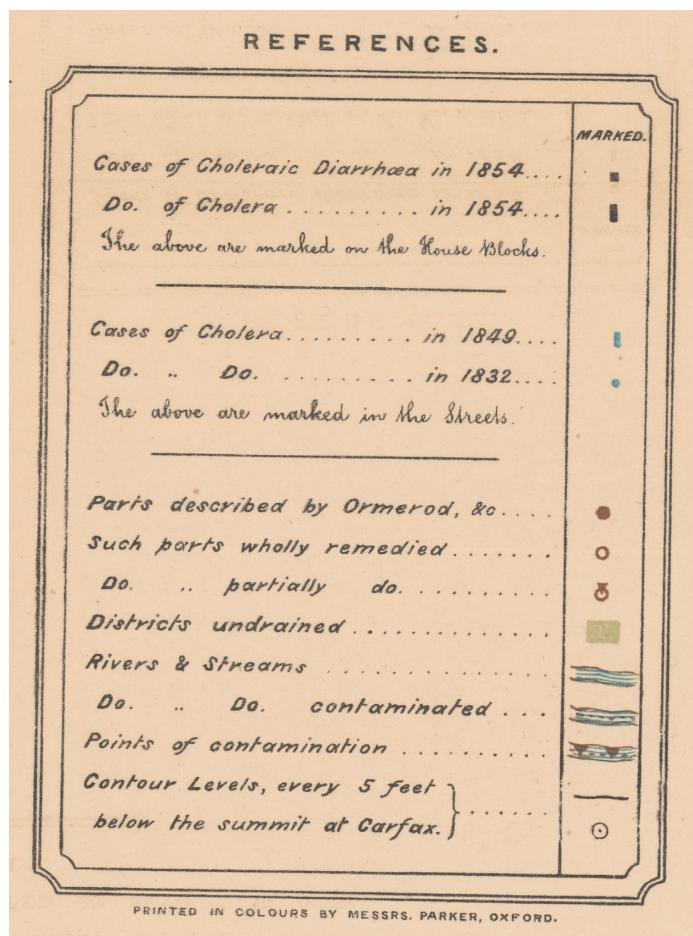 REFERENCES.
MARKED.
Cases of Choleraic Diarrhœa in 1854....
Do. of Cholera .......... in 1854....
The above are marked on the House Blocks.
Cases of Cholera.......... in 1849....
Do. „ Do. .......... in 1832....
The above are marked in the Streets.
Parts described by Ormerod, &c....
Such parts wholly remedied.......
Do. „ partially do. ..........
Districts undrained .............
Rivers & Streams ..............
Do. „ Do. contaminated ...
Points of contamination .........
Contour Levels, every 5 feet
below the summit at Carfax. ......
PRINTED IN COLOURS BY MESSRS. PARKER, OXFORD.